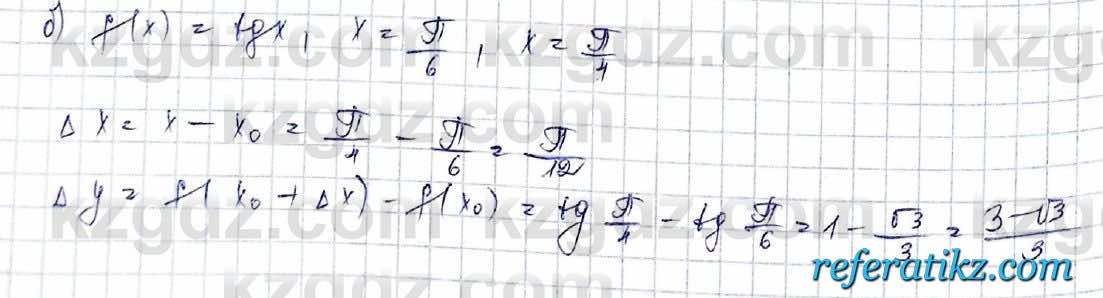 б) f(x) = tgx, x = π/6, x = π/4
Δx = x - x₀ = π/4 - π/6 = π/12
Δy = f(x₀ + Δx) - f(x₀) = tg π/4 - tg π/6 = 1 - √3/3 = 3-√3/3
kzgdz.com
referatikz.com